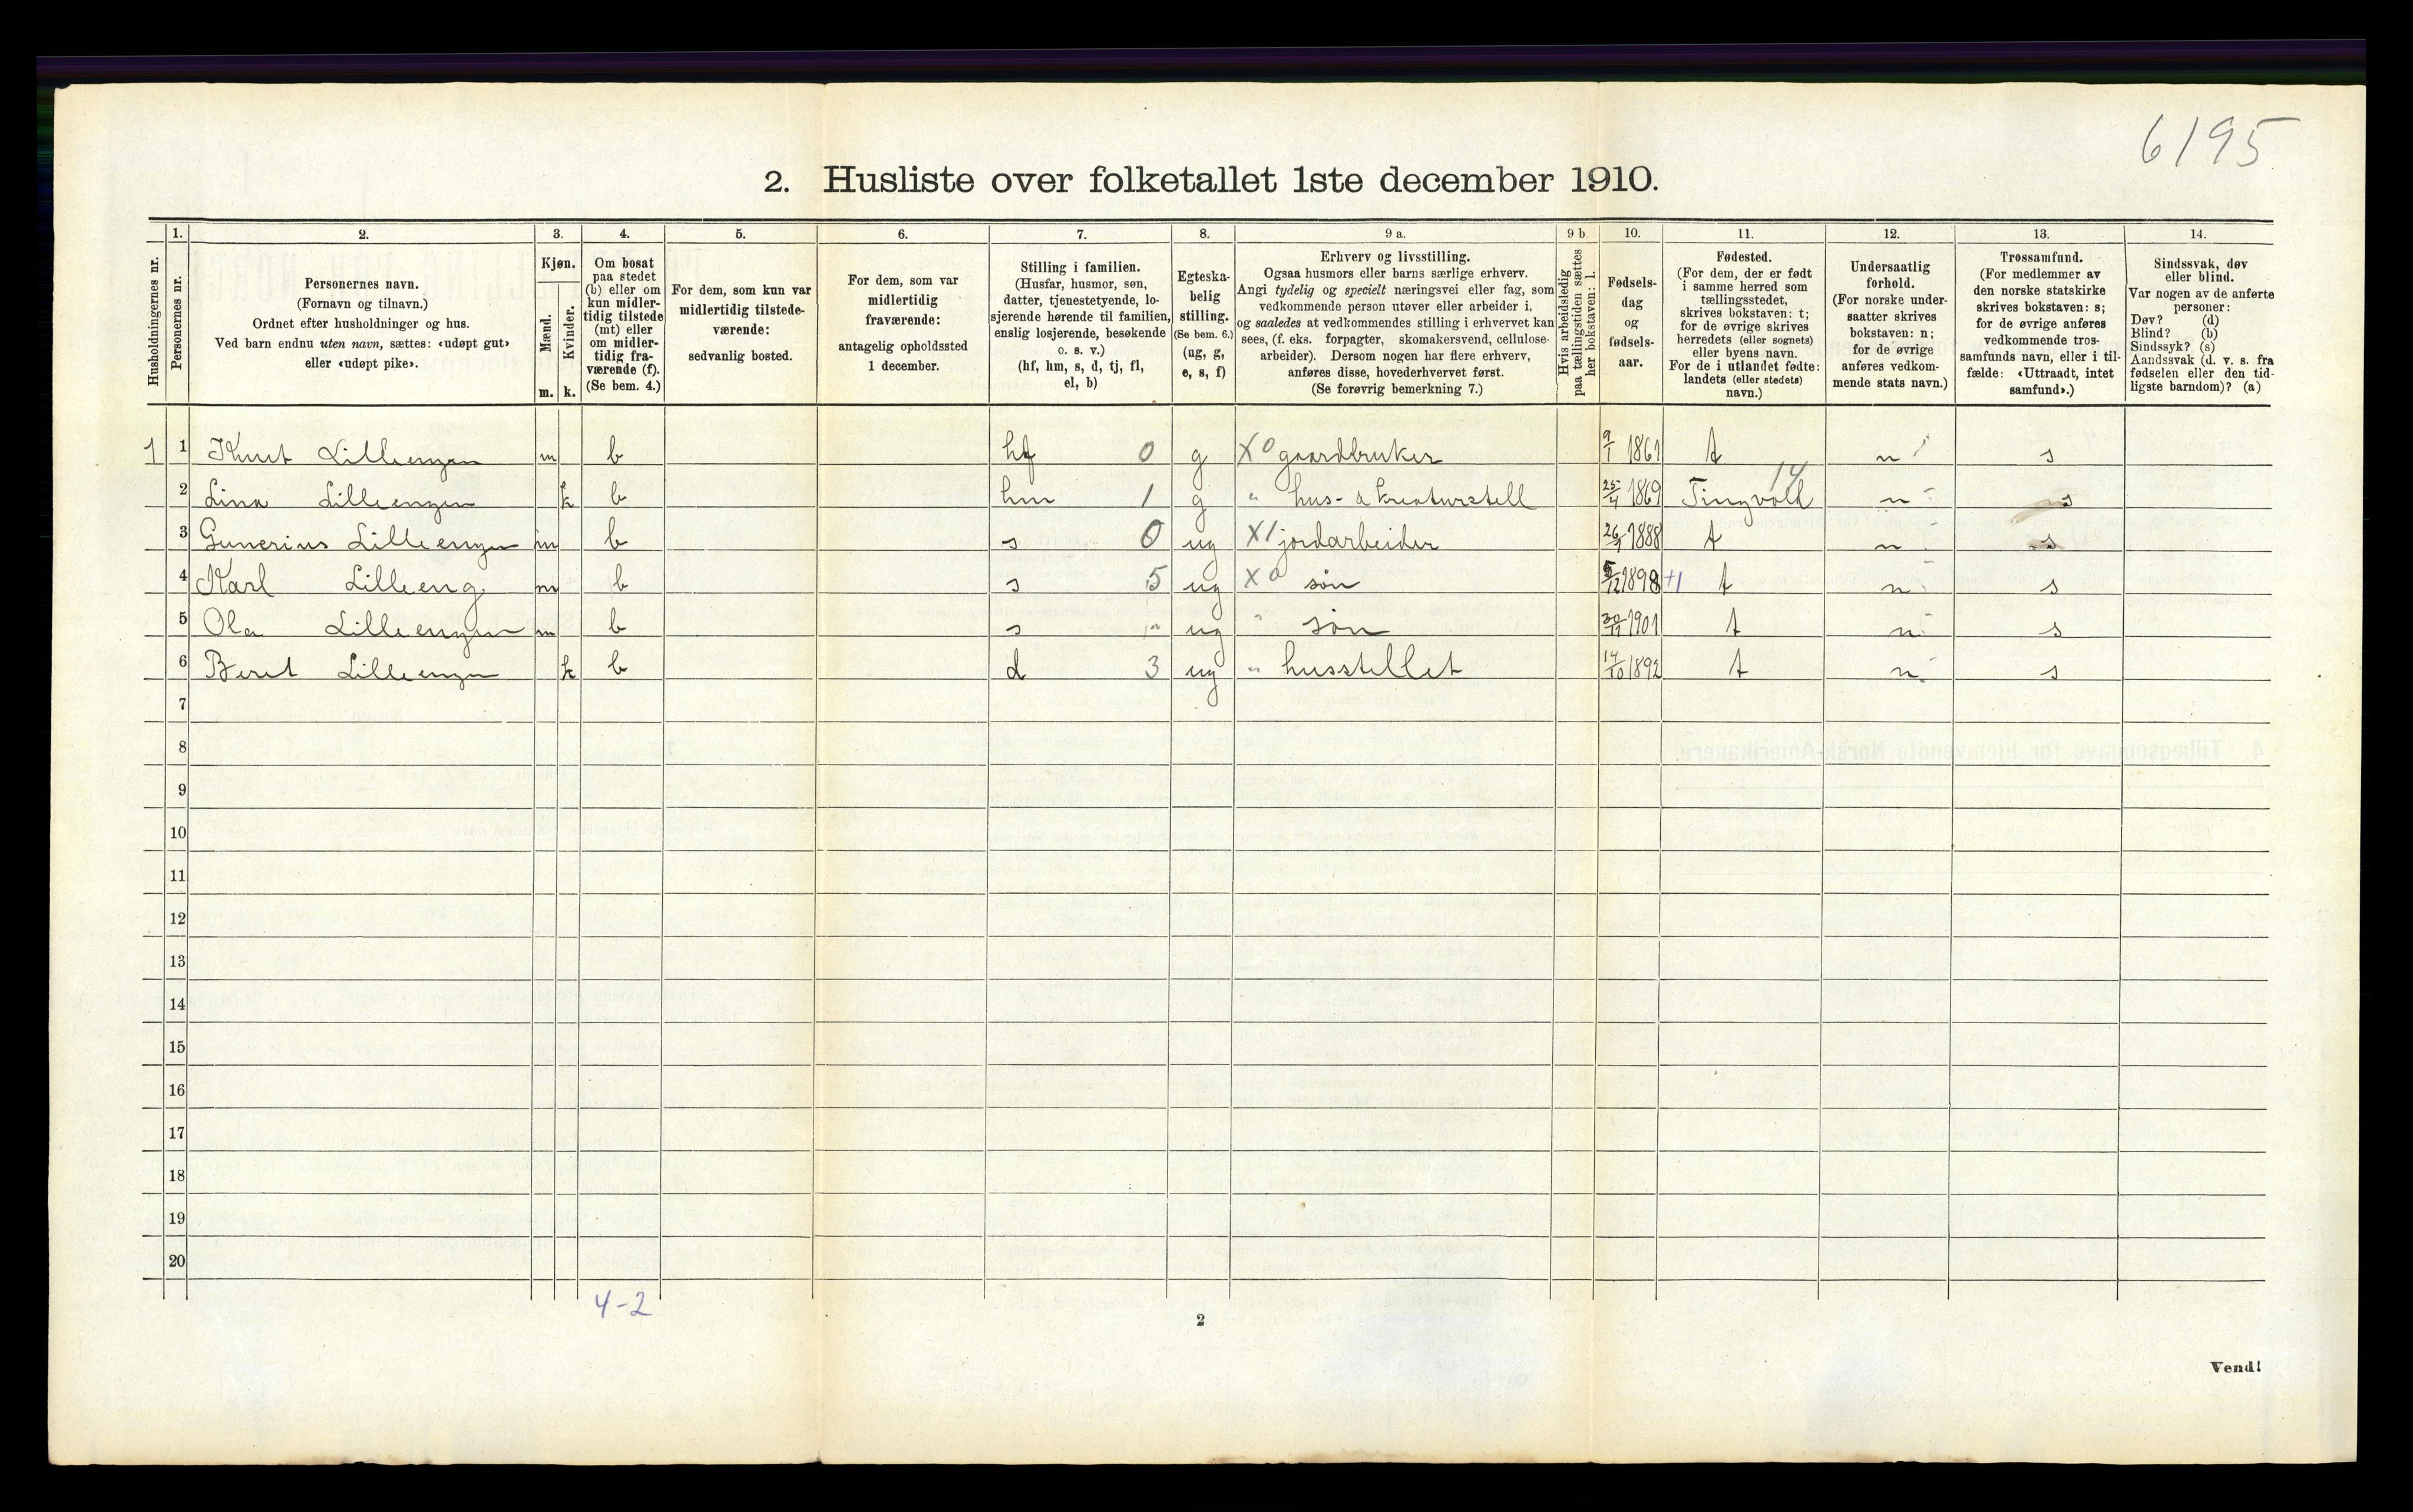 6195
2. Husliste over folketallet 1ste december 1910.
1. 2. 3. 4. 5. 6. 7. 8. 9 a. 9 b 10. 11. 12. 13. 14.
Husholdningernes nr.
Personernes nr.
Personernes navn.
(Fornavn og tilnavn.)
Ordnet efter husholdninger og hus.
Ved barn endnu uten navn, sættes: «udøpt gut»
eller «udøpt pike».
Kjøn.
Mænd.
Kvinder.
m. k.
Om bosat
paa stedet
(b) eller om
kun midler-
tidig tilstede
(mt) eller
om midler-
tidig fra-
værende (f).
(Se bem. 4.)
For dem, som kun var
midlertidig tilstede-
værende:
sedvanlig bosted.
For dem, som var
midlertidig
fraværende:
antagelig opholdssted
1 december.
Stilling i familien.
(Husfar, husmor, søn,
datter, tjenestetyende, lo-
sjerende hørende til familien,
enslig losjerende, besøkende
o. s. v.)
(hf, hm, s, d, tj, fl,
el, b)
Egteska-
belig
stilling.
(Se bem. 6.)
(ug, g,
e, s, f)
Erhverv og livsstilling.
Ogsaa husmors eller barns særlige erhverv.
Angi tydelig og specielt næringsvei eller fag, som
vedkommende person utøver eller arbeider i,
og saaledes at vedkommendes stilling i erhvervet kan
sees, (f. eks. forpagter, skomakersvend, cellulose-
arbeider). Dersom nogen har flere erhverv,
anføres disse, hovederhvervet først.
(Se forøvrig bemerkning 7.)
Hvis arbeidsledig
paa tællingstiden sættes
her bokstaven: l.
Fødsels-
dag
og
fødsels-
aar.
Fødested.
(For dem, der er født
i samme herred som
tællingsstedet,
skrives bokstaven: t;
for de øvrige skrives
herredets (eller sognets)
eller byens navn.
For de i utlandet fødte:
landets (eller stedets)
navn.)
Undersaatlig
forhold.
(For norske under-
saatter skrives
bokstaven: n;
for de øvrige
anføres vedkom-
mende stats navn.)
Trossamfund.
(For medlemmer av
den norske statskirke
skrives bokstaven: s;
for de øvrige anføres
vedkommende tros-
samfunds navn, eller i til-
fælde: «Uttraadt, intet
samfund».)
Sindssvak, døv
eller blind.
Var nogen av de anførte
personer:
Døv? (d)
Blind? (b)
Sindssyk? (s)
Aandssvak (d. v. s. fra
fødselen eller den tid-
ligste barndom)? (a)
1 1 Knut Lilleengen m b hf 0 g X0 gaardbruker 9/1 1861 t n s
2 Lina Lilleengen k b hm 1 g " hus- & kreaturstell 25/4 1869 Tingvold 14 n s
3 Gunerius Lilleengen m b s 0 ug X1 jordarbeider 26/9 1888 t n s
4 Karl Lilleeng m b s 5 ug X0 søn 5/12 1898 +1 t n s
5 Ola Lilleengen m b s ug " søn 30/11 1901 t n s
6 Beret Lilleengen k b d 3 ug " husstellet 14/10 1892 t n s
7
8
9
10
11
12
13
14
15
16
17
18
19
20
4-2
2
Vend!